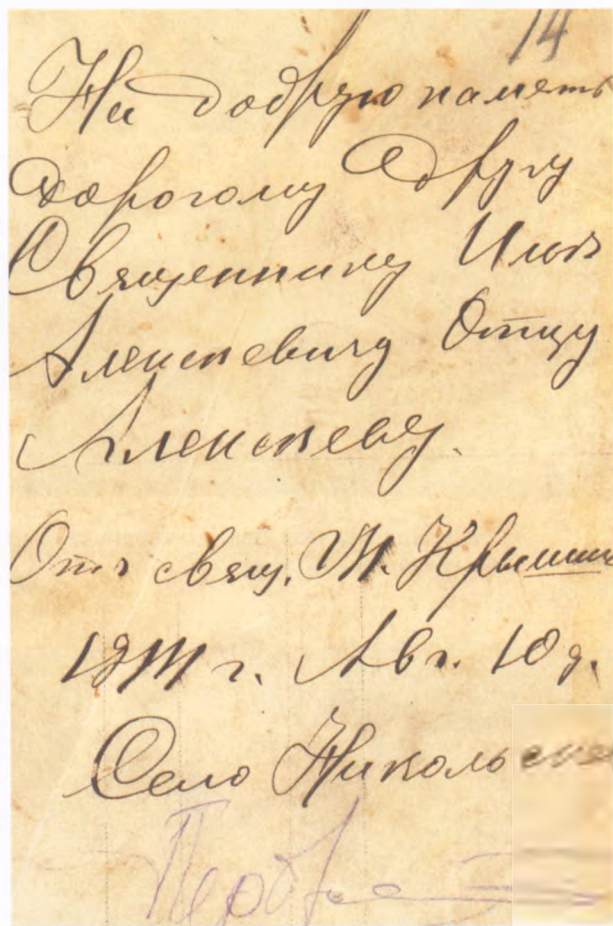 14
На добрую память
дорогому другу
Священнику Илье
Алексеевичу Отцу
Алексееву.
Отъ свящ. Крыл
г. Авг. 10 д.
Село Никольское